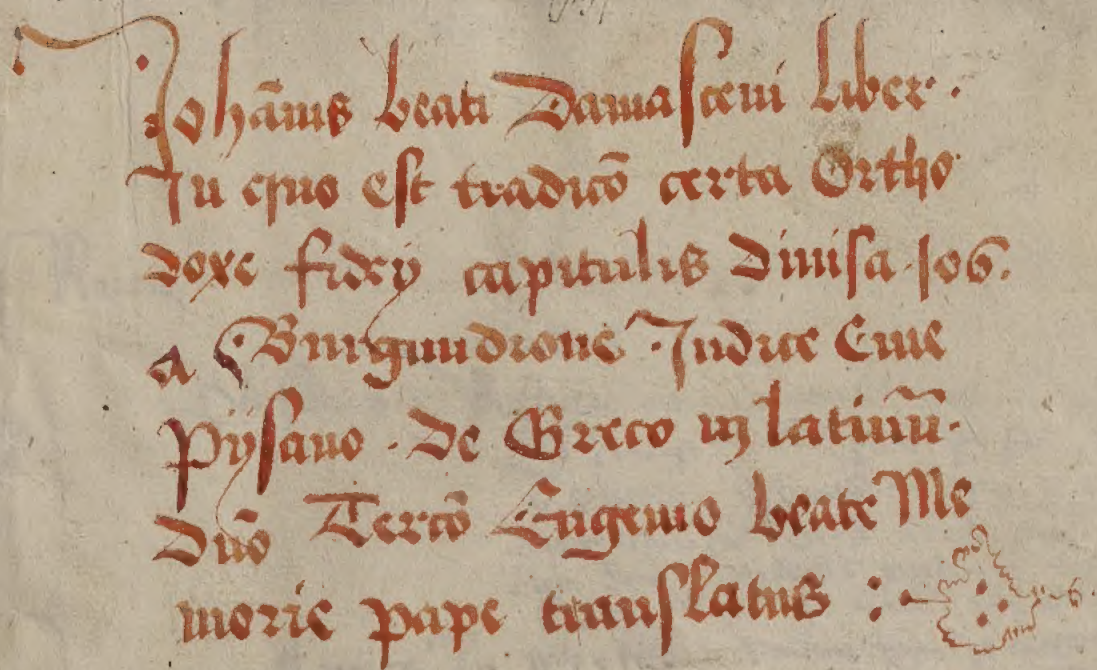 Johānis beati Damasceni liber·
In quo est tradicō certa Ortho
doxe fidey capitulis Diuisa 106.
a Burgundione Judice Ciue
Pysano · De Greco in latinū·
Dnō Tercō Eugenio beate Me
morie pape translatus :